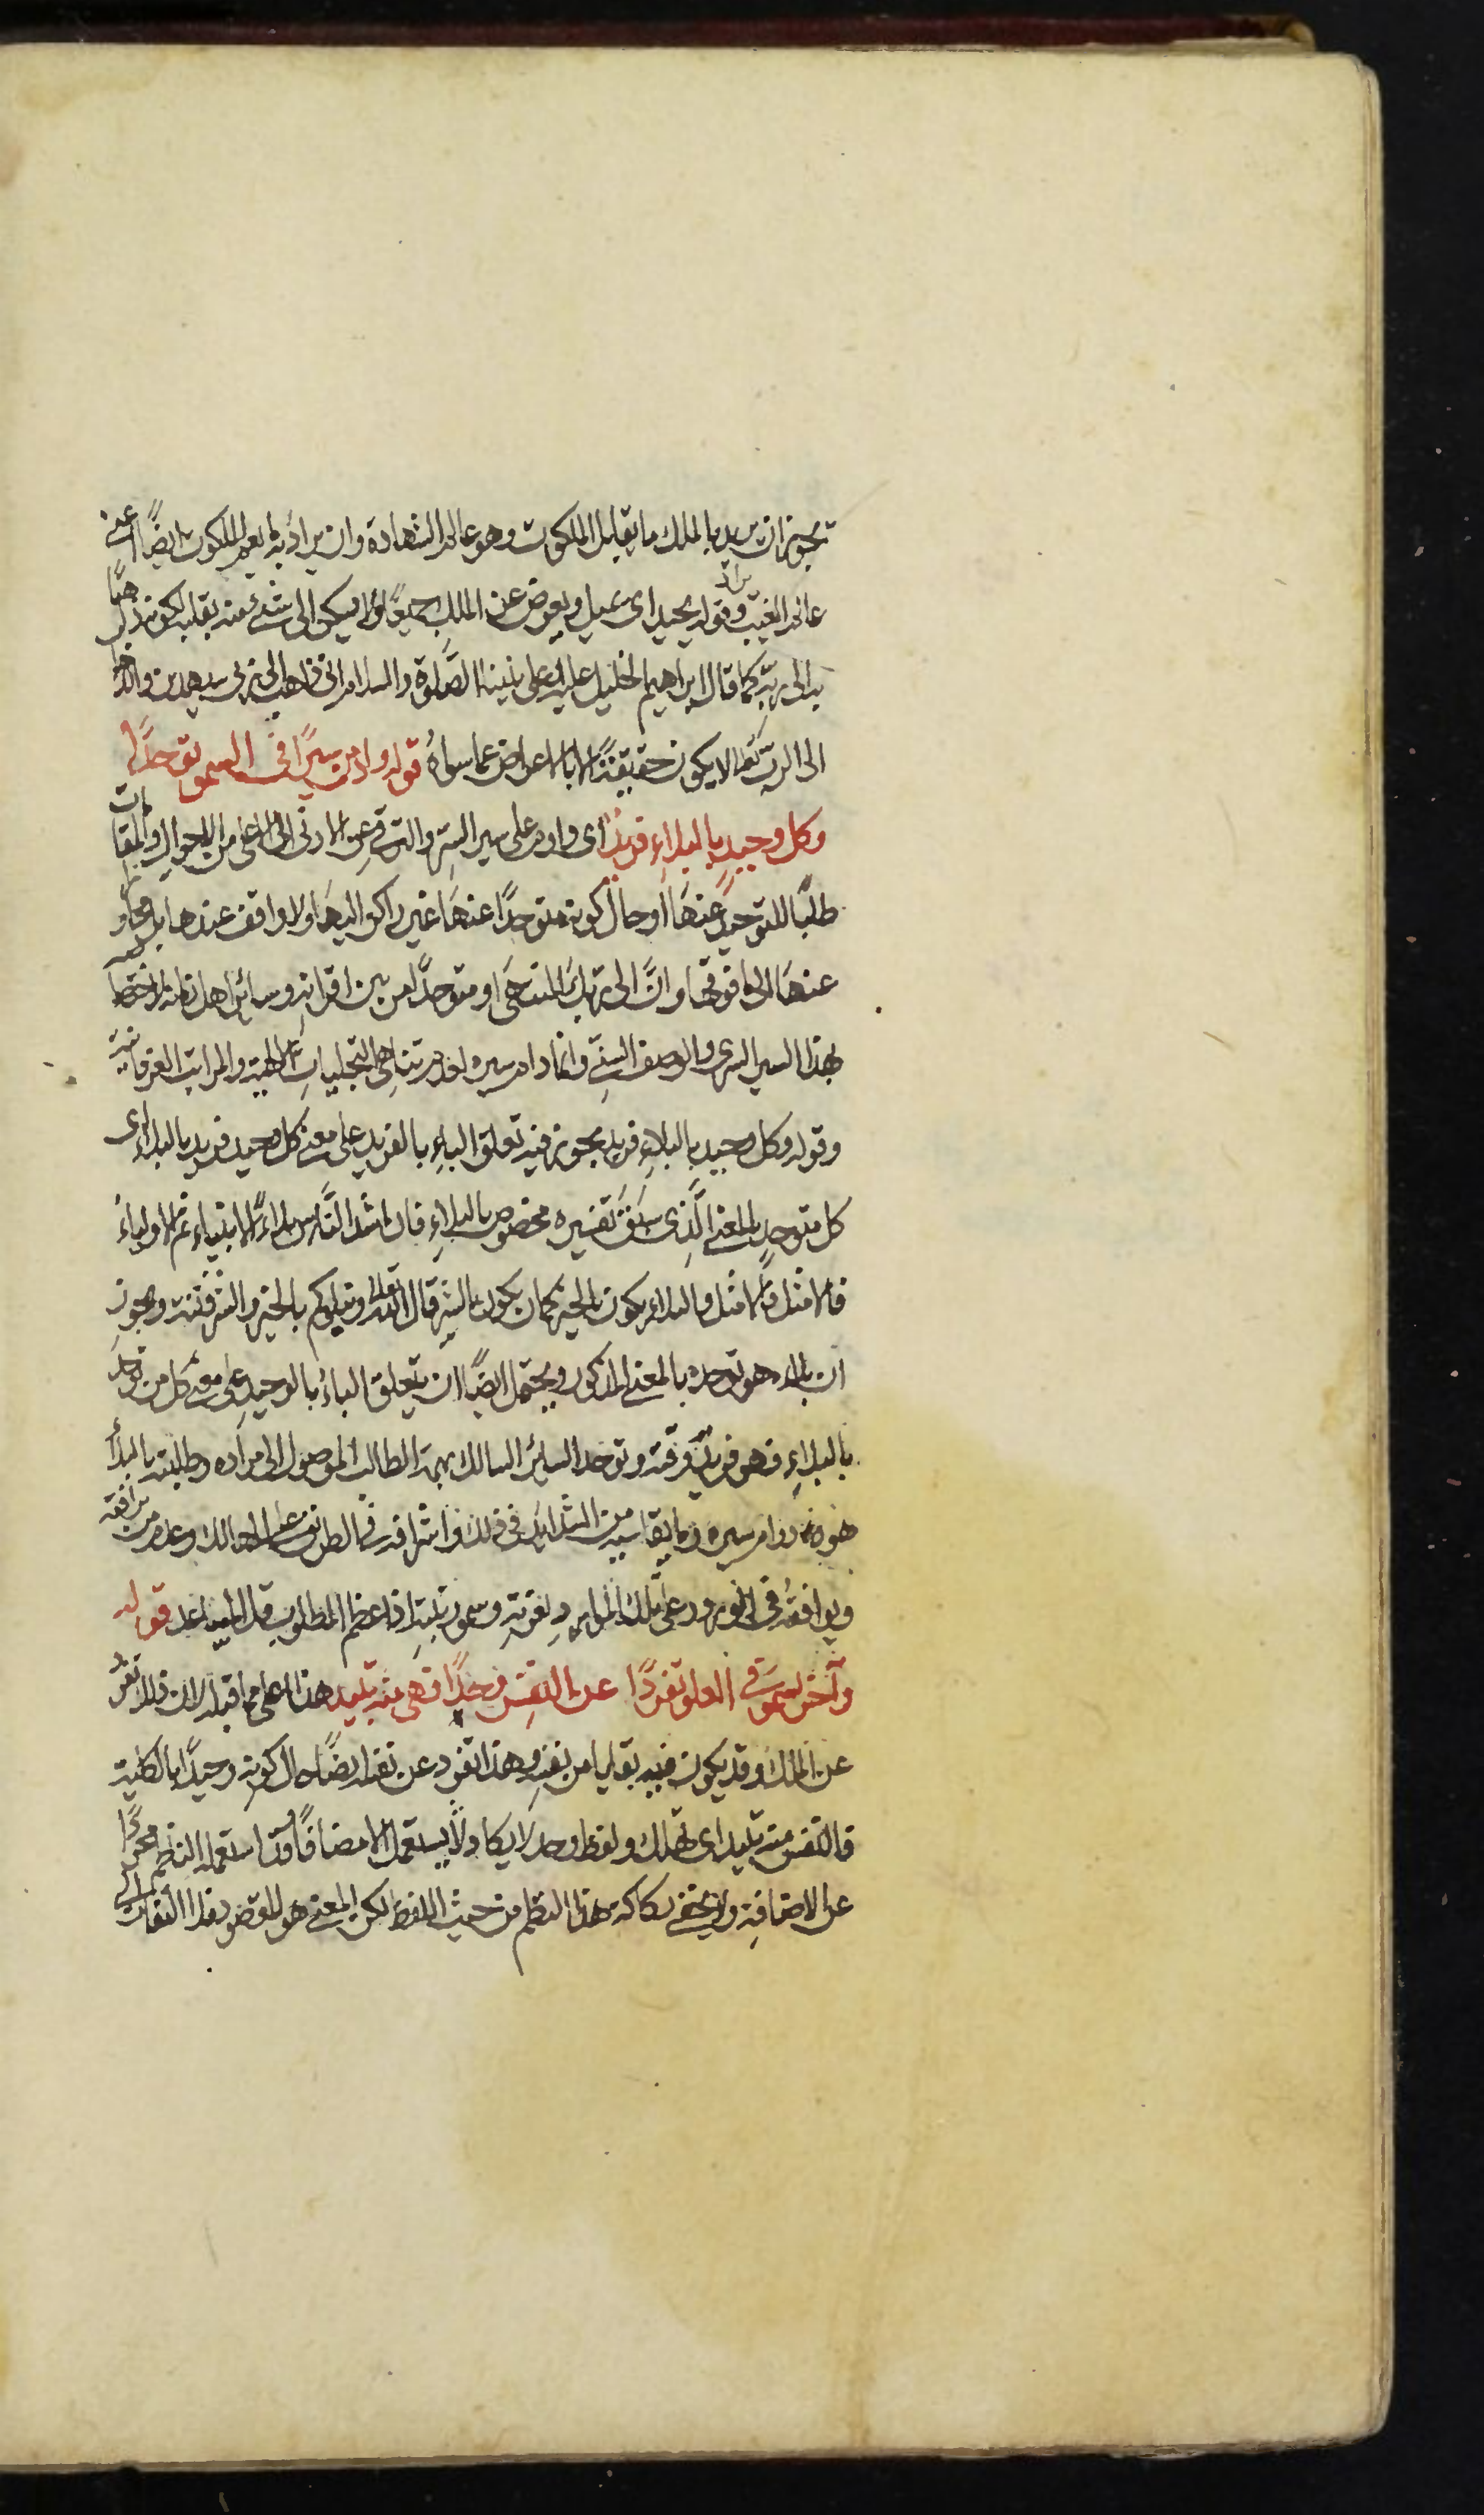 يجوز ان يريد بالملك ما يقابل الملكوت وهو عالم الشهادة وان يراد به ما يعم الملكوت ايضًا اعنى
عالم الغيب وقوله يحيد اى يميل ويعرض عن الملك جميعًا ولا يميل الى شئ منه بقلبه لكونه ذاهبًا
به الى ربه كما قال ابراهيم الخليل عليه وعلى نبينا الصلوة والسلام انى ذاهب الى ربى سيهدين والذهاب
الى الرب تعالى لا يكون حقيقة الا بالاعراض عما سواه قوله وادمن سيرًا فى السمو توحدًا
وكل وحيد بالبلاء فريد اى وادم على سير السر والترقى عن الادنى الى الاعلى من الاحوال والمقامات
طلبًا للتوحيد عنها او حال كونه متوحدًا عنها غير راكن اليها ولا واقف عندها بل مجاوز
عنها الى ما فوقها وان الى ربك المنتهى او متوحدًا من بين اقرانه وسائر اهل زمانه لاختصاصه
بهذا السير السرى والوصف السنى وانما دام سيره لعدم تناهى التجليات الالهية والمراتب العرفانية
وقوله وكل وحيد بالبلاء فريد يجوز فيه تعلق الباء بالفريد على معنى كل وحيد فريد بالبلاء اى
كل متوحد بالمعنى الذى سبق تفسيره مخصوص بالبلاء فان اشد الناس بلاءً الانبياء ثم الاولياء
فالامثل فالامثل والبلاء يكون بالخير كما ان يكون بالشر قال الله تعالى ونبلوكم بالخير والشر فتنة ويجوز
ان بلاءه هو توحده بالمعنى المذكور ويحتمل ايضًا ان يتعلق الباء بالوحيد على معنى كل من توحد
بالبلاء فهو فريد وقته وتوحد السائر السالك بهمة الطالب الموصول الى مراده وطلبته بالبلاء
هو دوام سيره وما يقاسيه من الشدائد فى ذلك وانفراده فى الطريق عن السالك وعدم من يرافقه
ويوافقه فى الورود على تلك الموارد لعزته وسمو رتبته اذا عظم المطلوب قل المساعد قوله
وآخر يسمو فى العلو تفردًا عن النفس وحدًا فهى منه تبيد هذا اعلى مما قبله لان ذلك تفرد
عن الملك وقد يكون فيه بقايا من نفسه وهذا تفرد عن نفسه ايضًا حال كونه وحيدًا بالكلية
فالنفس منه تبيد اى تهلك ولفظ وحد لا يكاد يستعمل الا مضافًا وقد استعمله الناظم مجردًا
عن الاضافة ولا يخفى ركاكة هذا النظم من حيث اللفظ لكن المعنى هو المقصود فلا التفات الى